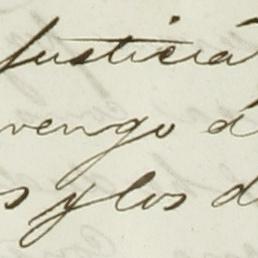 Justicia
vengo á
s y los d